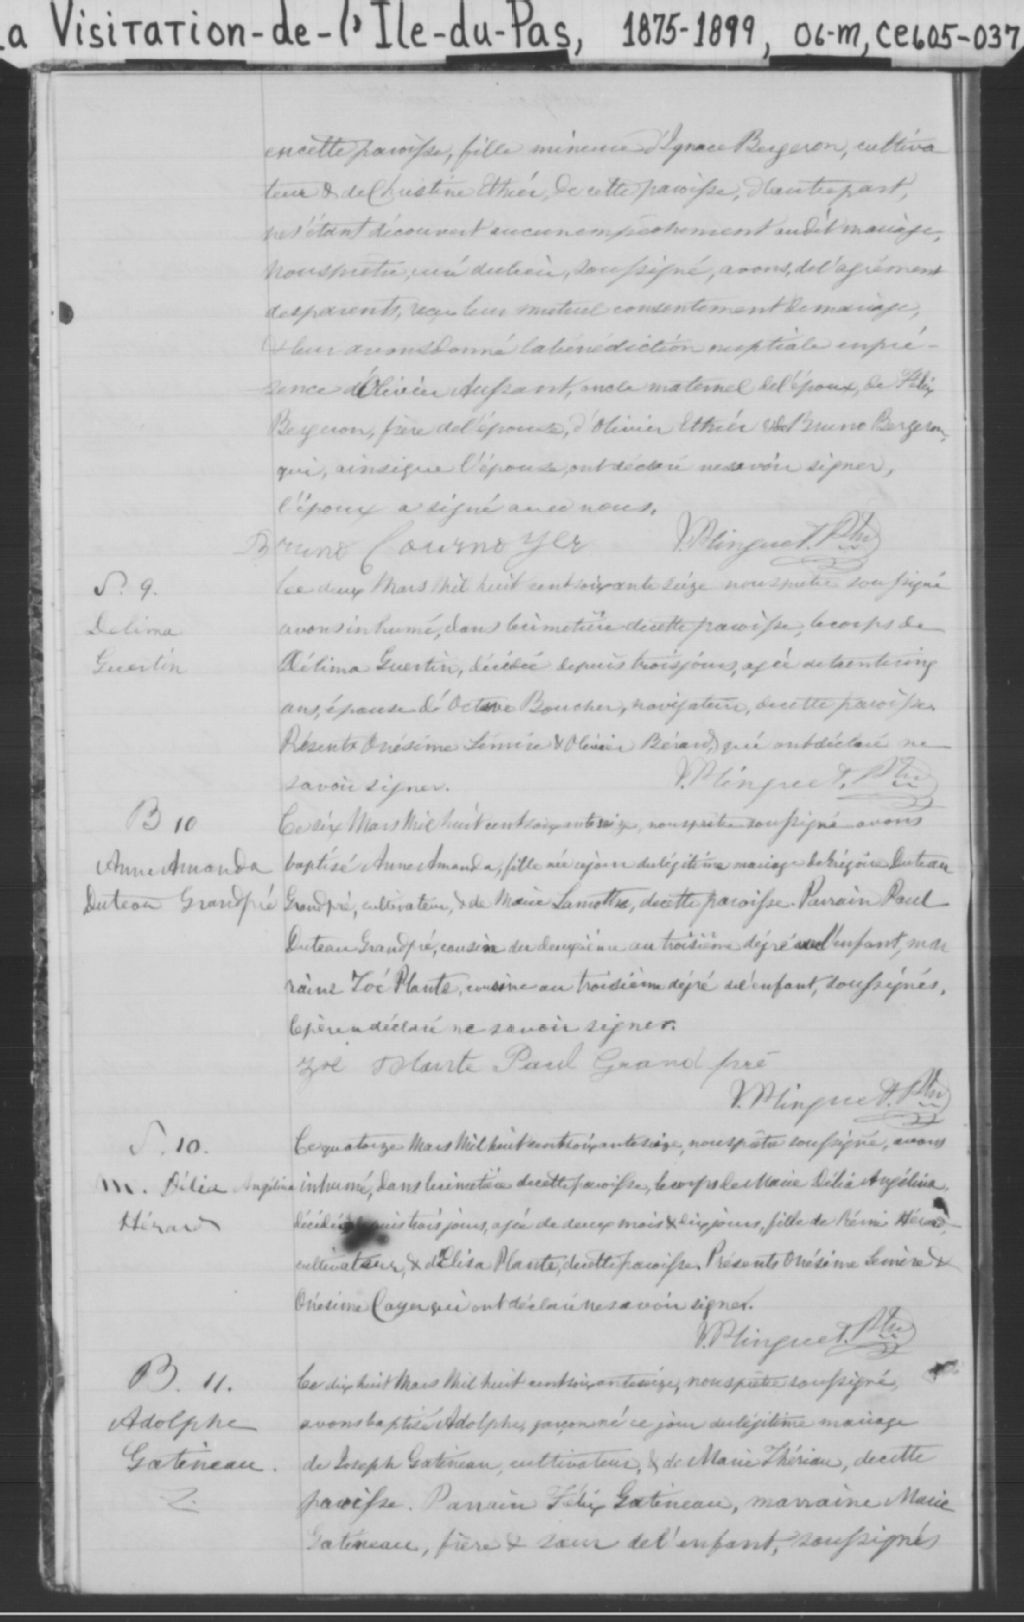 La Visitation-de-l'Ile-du-Pas, 1875-1899, 06-m, CE605-037
en cette paroisse, fille mineure d'Ignace Bergeron, cultiva
teur & de Christine Ethier, de cette paroisse, d'autre part,
ne s'étant découvert aucun empêchement au dit mariage,
nous prêtre, curé du lieu, soussigné, avons, de l'agrément
des parents, reçu leur mutuel consentement de mariage,
& leur avons donné la bénédiction nuptiale en pré-
sence d'Olivier Aussant, oncle maternel de l'époux, de Félix
Bergeron, frère de l'épouse, d'Olivier Ethier & de Bruno Bergeron,
qui, ainsi que l'épouse, ont déclaré ne savoir signer,
l'époux a signé avec nous.
Bruno Cournoyer V. Plinguet. Ptre
S. 9. Ce deux Mars Mil huit cent soixante seize nous prêtre soussigné
Delima avons inhumé, dans le cimetière de cette paroisse, le corps de
Guertin Délima Guertin, décédée depuis trois jours, agée de trente cinq
ans, épouse d'Octave Boucher, navigateur, de cette paroisse.
Présents Onésime Lemire & Olivier Bérard, qui ont déclaré ne
savoir signer. V. Plinguet. Ptre
B 10 Ce six Mars Mil huit cent soixante seize, nous prêtre soussigné avons
Anne Amanda baptisé Anne Amanda, fille née ce jour du légitime mariage de Grégoire Duteau
Duteau Grandpré Grandpré, cultivateur, & de Marie Lamothe, de cette paroisse. Parrain Paul
Duteau Grandpré, cousin du deuxième au troisième dégré de l'enfant, mar
raine Zoé Plante, cousine au troisième dégré de l'enfant, soussignés.
Le père a déclaré ne savoir signer.
Zoé Plante Paul Grandpré
V. Plinguet. Ptre
S. 10. Ce quatorze Mars Mil huit cent soixante seize, nous prêtre soussigné, avons
M. Délia Angélina inhumé, dans le cimetière de cette paroisse, le corps de Marie Délia Angélina,
Hérard décédée depuis trois jours, agée de deux mois & dix jours, fille de Rémi Hérard,
cultivateur, & d'Elisa Plante, de cette paroisse. Présents Onésime Lemire &
Onésime Cayer qui ont déclaré ne savoir signer.
V. Plinguet. Ptre
B. 11. Ce dix huit Mars Mil huit cent soixante seize, nous prêtre soussigné,
Adolphe avons baptisé Adolphe, garçon né ce jour du légitime mariage
Gatineau. de Joseph Gatineau, cultivateur, & de Marie Thériau, de cette
paroisse. Parrain Félix Gatineau, marraine Marie
Gatineau, frère & soeur de l'enfant, soussignés